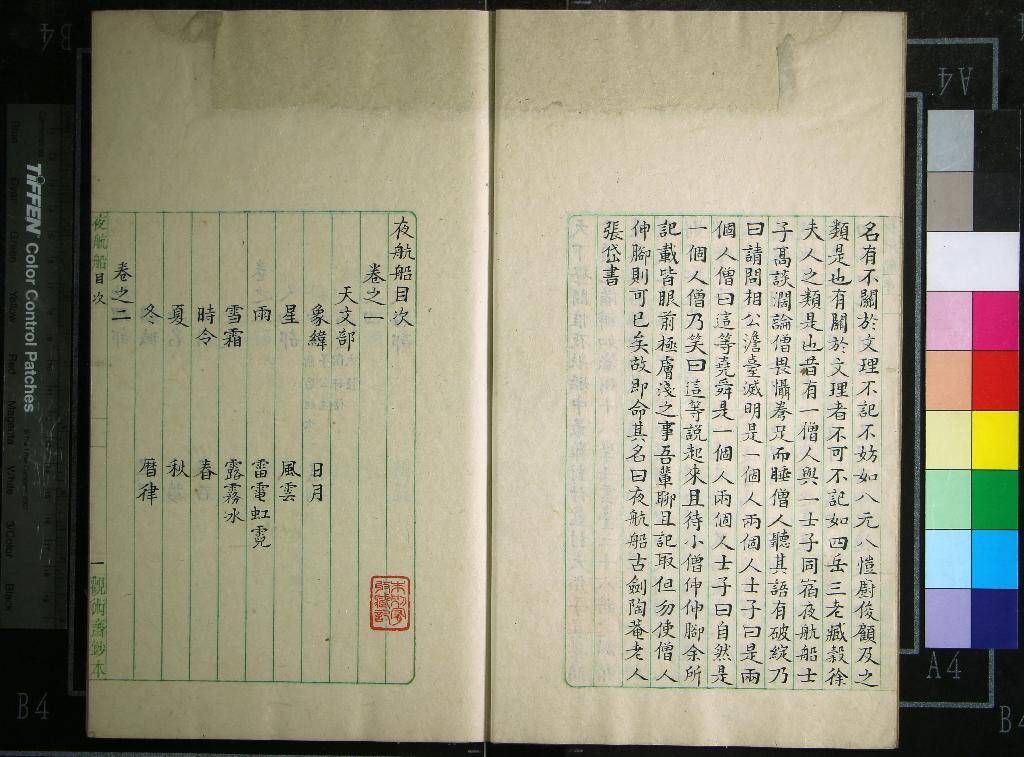 名有不關於文理不記不妨如八元八愷廚俊顧及之
類是也有關於文理者不可不記如四岳三老臧穀徐
夫人之類是也昔有一僧人與一士子同宿夜航船士
子高談濶論僧畏懾拳足而睡僧人聽其語有破綻乃
曰請問相公澹臺滅明是一個人兩個人士子曰是兩
個人僧曰這等堯舜是一個人兩個人士子曰自然是
一個人僧乃笑曰這等說起來且待小僧伸伸腳余所
記載皆眼前極膚淺之事吾輩聊且記取但勿使僧人
伸腳則可已矣故即命其名曰夜航船古劍陶菴老人
張岱書
夜航船目次
卷之一
天文部
象緯 日月
星 風雲
雨 雷電虹霓
雪霜 露霧冰
時令 春
夏 秋
冬 曆律
卷之二
夜航船 目次
一
觀術齋鈔本
TIFFEN Color Control Patches
Blue
Cyan
Green
Yellow
Red
Magenta
White
3/Color
Black
B4
A4
A4
B4
B